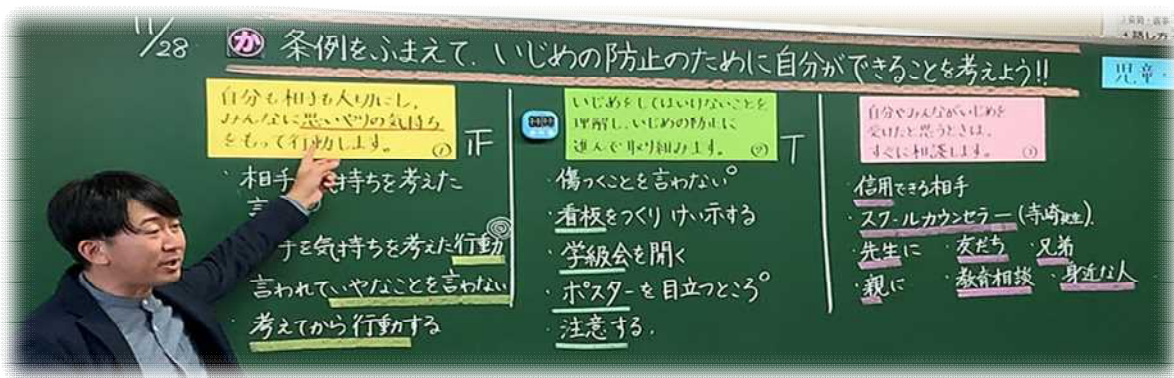 11/28
か 条例をふまえて、いじめの防止のために自分ができることを考えよう!!
自分も相手も大切にし、
みんなに思いやりの気持ち
をもって行動します。 ①
正
・相手 気持ちを考えた
言
手を気持ちを考えた行動
言われていやなことを言わない
・考えてから行動する
いじめをしてはいけないことを
理解し、いじめの防止に
進んで取り組みます。 ②
・傷つくことを言わない
・看板をつくり けい示する
・学級会を開く
・ポスターを目立つところ
・注意する.
自分やみんながいじめを
受けたと思うときは、
すぐに相談します。 ③
・信用できる相手
・スクールカウンセラー(寺崎先生).
・先生に ・友だち ・兄弟
・親に ・教育相談 ・身近な人
児童